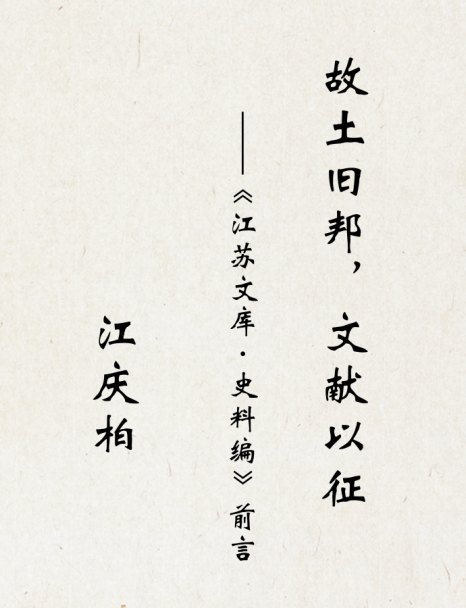 故土旧邦，文献以征
——《江苏文库·史料编》前言
江庆柏